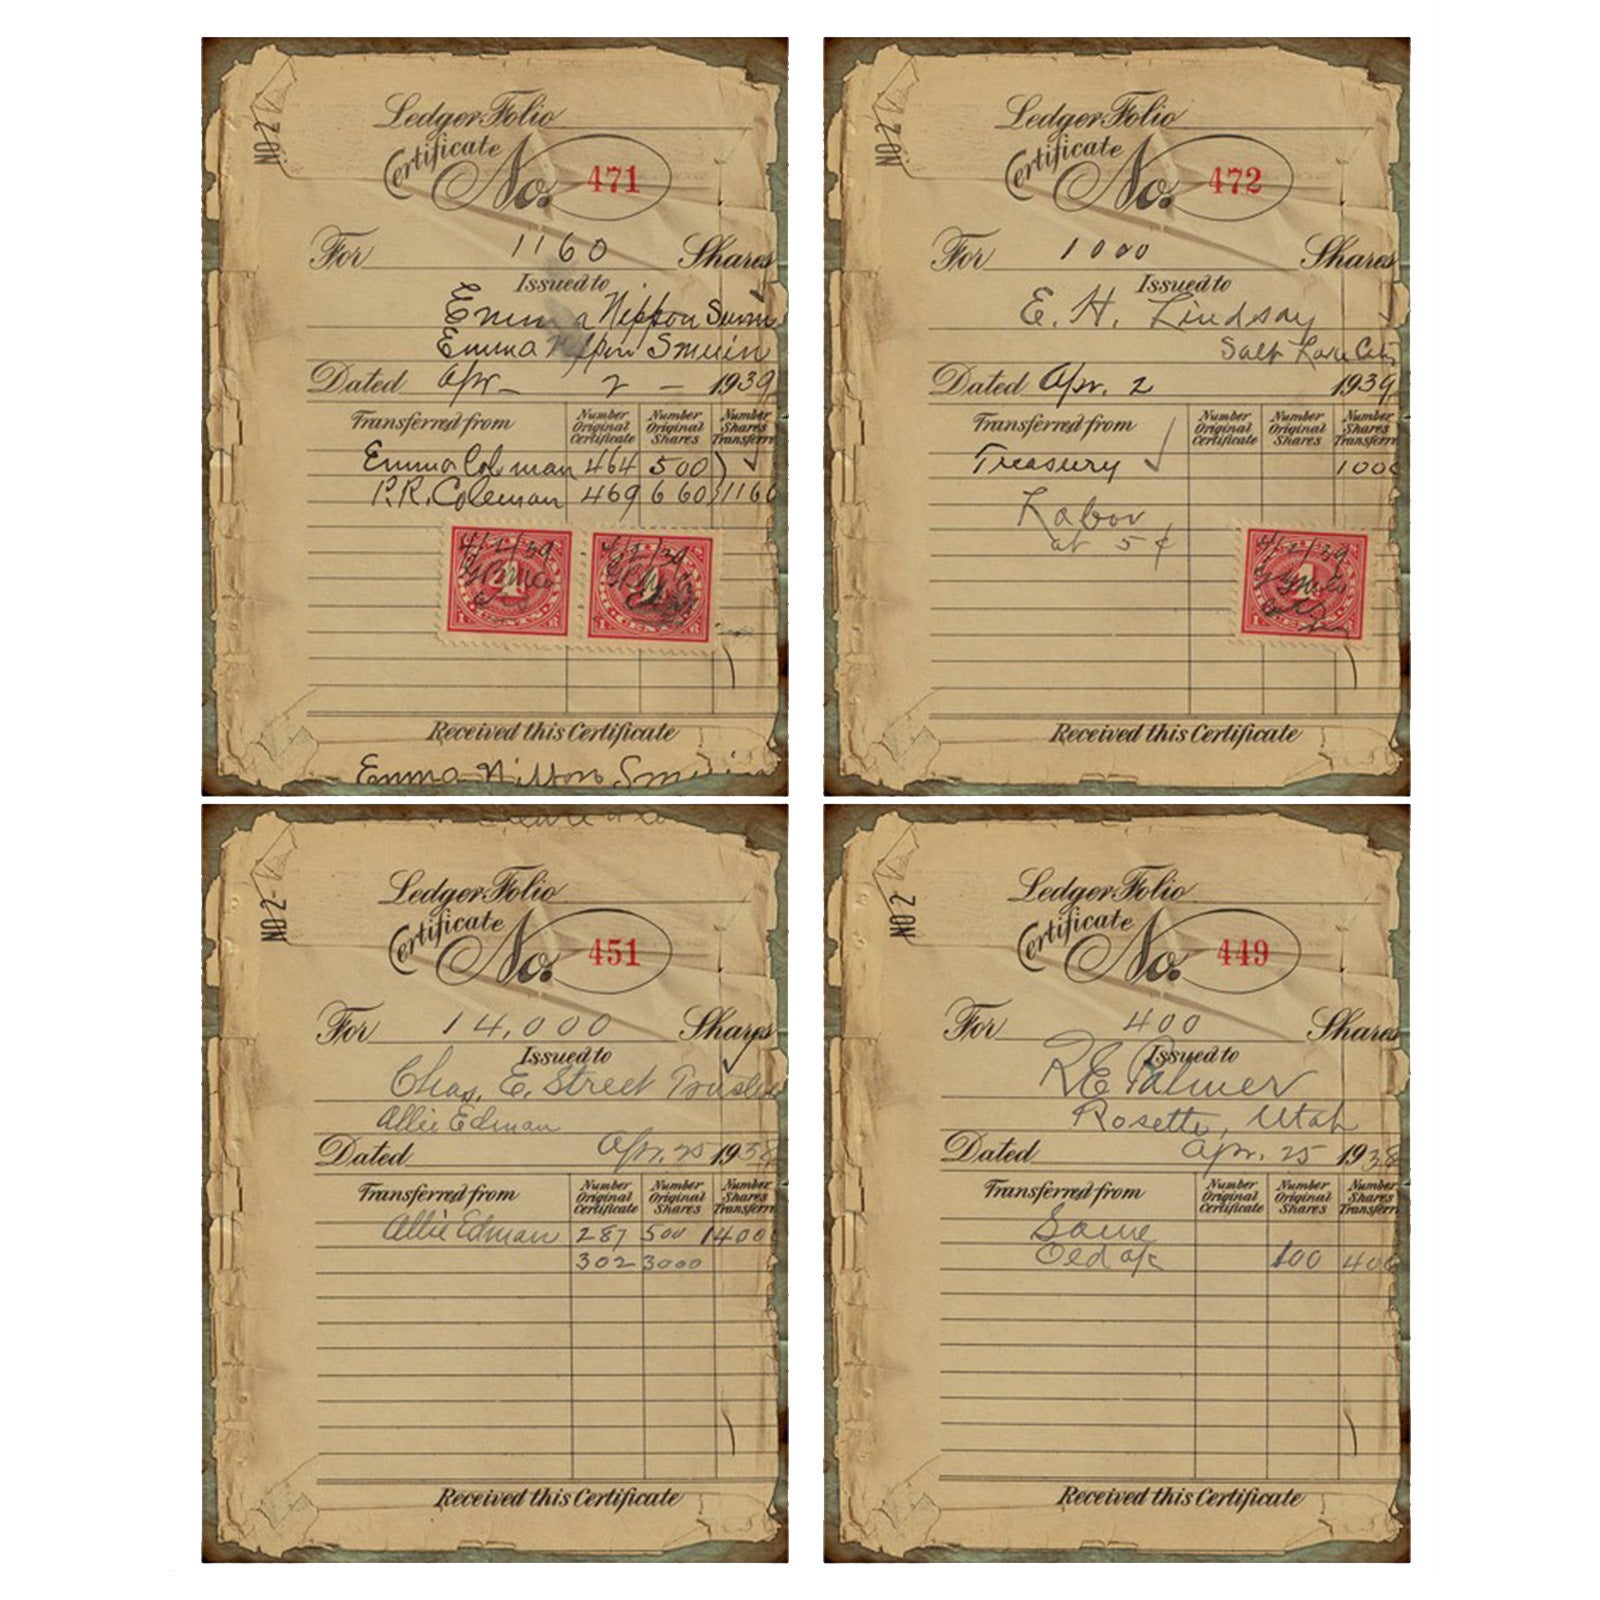 NO 2
Ledger Folio
Certificate No. 471
For 1160 Shares
Issued to
Emma Nippon
Emma Smuin
Dated Apr - 2 - 1939
Transferred from Number Original Certificate Number Original Shares Number Shares Transferre
Emma Coleman 464 500
P.R. Coleman 469 660 1160
4/2/39 4/2/39
4 4
CENTS CENTS
Received this Certificate
Emma
NO 2
Ledger Folio
Certificate No. 472
For 1000 Shares
Issued to
E. H. Lindsay
Salt Lake City
Dated Apr. 2 1939
Transferred from Number Original Certificate Number Original Shares Number Shares Transferre
Treasury 1000
Labor
at 5 ¢
4/2/39
Received this Certificate
NO 2-
Ledger Folio
Certificate No. 451
For 14,000 Shares
Issued to
Chas. E. Street Trustee
Allie Edman
Dated Apr. 25 1938
Transferred from Number Original Certificate Number Original Shares Number Shares Transferre
Allie Edman 287 500 14000
302 3000
Received this Certificate
NO 2-
Ledger Folio
Certificate No. 449
For 400 Shares
Issued to
R E Palmer
Rosette, Utah
Dated Apr. 25 1938
Transferred from Number Original Certificate Number Original Shares Number Shares Transferre
Same
Old a/c 100 400
Received this Certificate